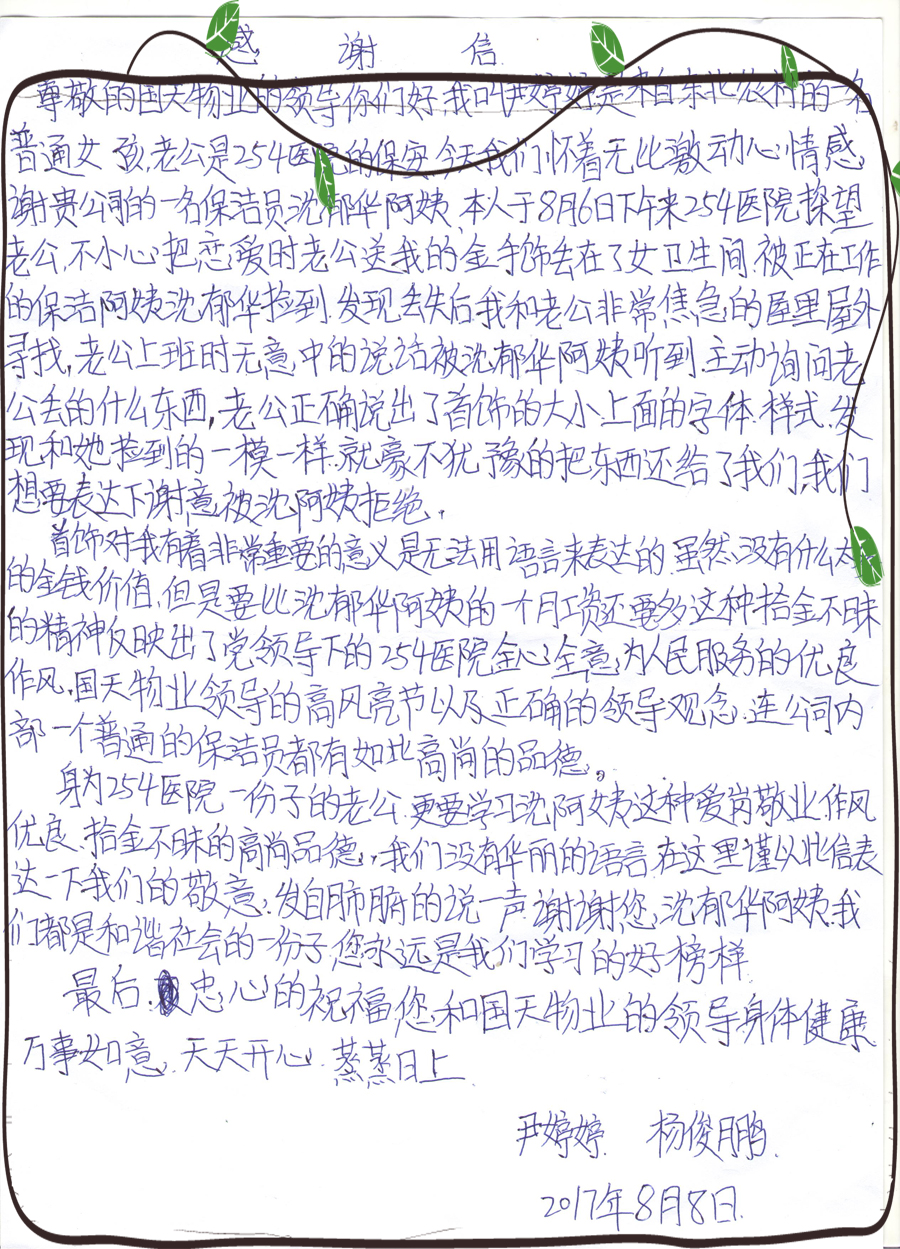 感 谢 信
尊敬的国天物业的领导你们好,我叫尹婷婷是来自东北农村的一名
普通女孩,老公是254医院的保安,今天我们怀着无比激动心情感
谢贵公司的一名保洁员沈郁华阿姨,本人于8月6日下午来254医院探望
老公,不小心把恋爱时老公送我的金手饰丢在了女卫生间,被正在工作
的保洁阿姨沈郁华捡到.发现丢失后我和老公非常焦急的屋里屋外
寻找,老公上班时无意中的说话被沈郁华阿姨听到,主动询问老
公丢的什么东西,老公正确说出了首饰的大小上面的字体.样式.发
现和她捡到的一模一样.就豪不犹豫的把东西还给了我们,我们
想要表达下谢意,被沈阿姨拒绝.
首饰对我有着非常重要的意义是无法用语言来表达的.虽然没有什么太
的金钱价值,但是要比沈郁华阿姨的一个月工资还要多这种拾金不昧
的精神反映出了党领导下的254医院全心全意为人民服务的优良
作风,国天物业领导的高风亮节以及正确的领导观念.连公司内
部一个普通的保洁员都有如此高尚的品德。
身为254医院一份子的老公.更要学习沈阿姨这种爱岗敬业,作风
优良.拾金不昧的高尚品德,我们没有华丽的语言,在这里谨以此信表
达一下我们的敬意,发自肺腑的说一声.谢谢您,沈郁华阿姨.我
们都是和谐社会的一份子.您永远是我们学习的好榜样.
最后.忠心的祝福您和国天物业的领导身体健康
万事如意.天天开心.蒸蒸日上.
尹婷婷 杨俊鹏.
2017年8月8日.